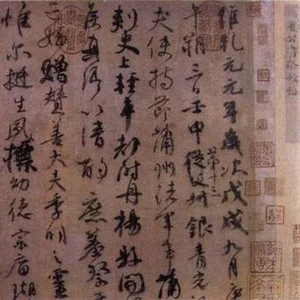 維乾元元年歲次戊戌九月庚
午朔三日壬申第十三從父銀青光
夫使持節蒲州諸軍事蒲
刺史上輕車都尉丹楊縣開
侯真卿以清酌庶羞祭
亡姪贈贊善大夫季明之靈
惟爾挺生夙標幼德宗廟瑚